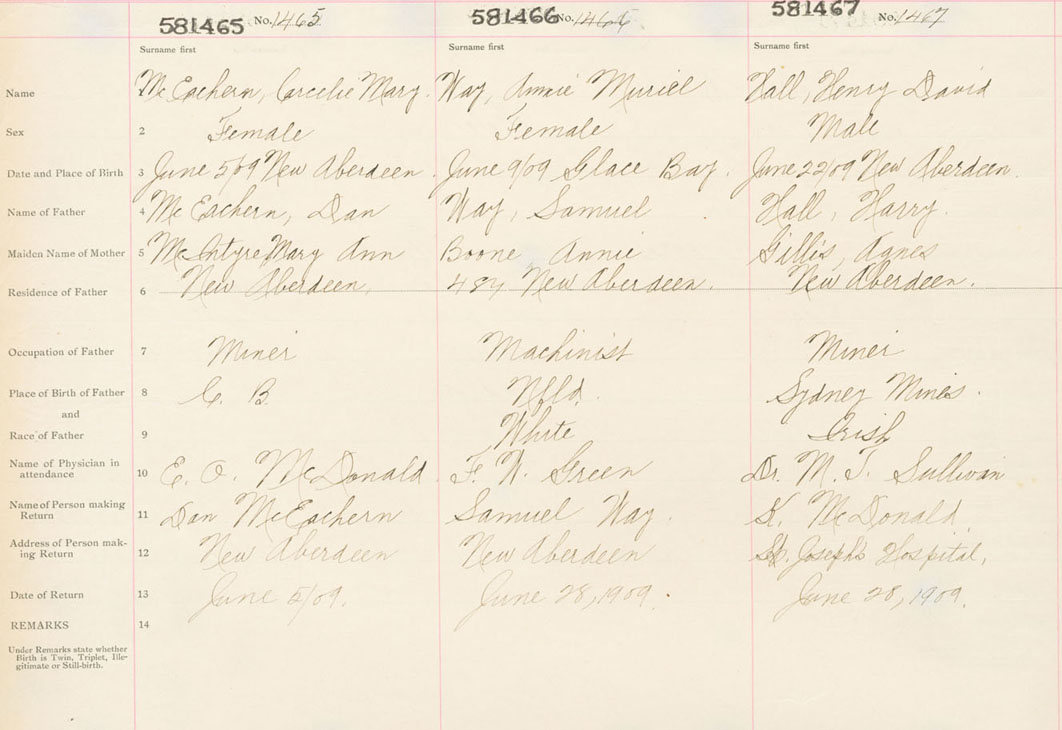 581465 No. 1465 581466 No. 1466 581467 No. 1467
Surname first Surname first Surname first
Name 1 McEachern, Cecelie Mary. Way, Annie Muriel Hall, Henry David
Sex 2 Female Female Male
Date and Place of Birth 3 June 5/09 New Aberdeen. June 9/09 Glace Bay. June 22/09 New Aberdeen.
Name of Father 4 McEachern, Dan Way, Samuel Hall, Harry.
Maiden Name of Mother 5 McIntyre Mary Ann Boone Annie Gillis, Agnes
Residence of Father 6 New Aberdeen, New Aberdeen. New Aberdeen.
Occupation of Father 7 Miner Machinist Miner
Place of Birth of Father 8 C. B. Nfld. Sydney Mines.
and
Race of Father 9 White Irish
Name of Physician in attendance 10 E. O. McDonald F. W. Green Dr. M. T. Sullivan
Name of Person making Return 11 Dan McEachern Samuel Way. K. McDonald.
Address of Person mak-ing Return 12 New Aberdeen New Aberdeen St. Joseph's Hospital,
Date of Return 13 June 5/09. June 28, 1909. June 28, 1909.
REMARKS 14
Under Remarks state whether
Birth is Twin, Triplet, Ille-
gitimate or Still-birth.